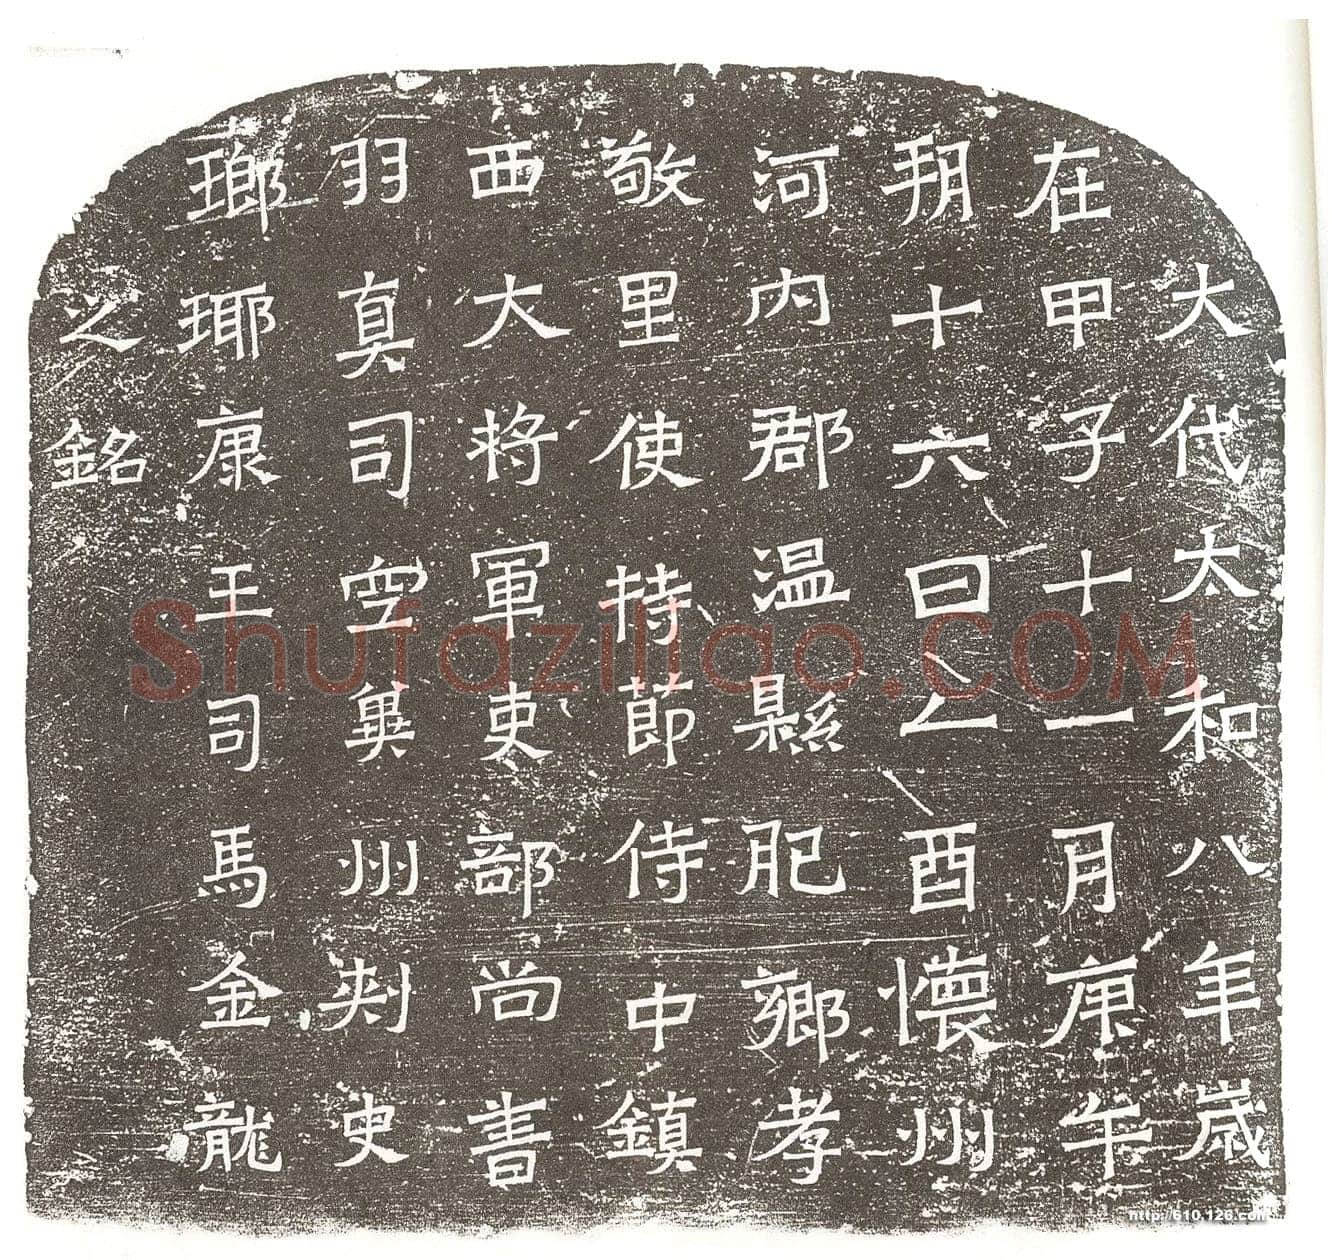 大代太和八年歲
在甲子十一月庚午
朔十六日乙酉懷州
河內郡温縣肥鄉孝
敬里使持節侍中鎮
西大將軍吏部尚書
羽真司空冀州刺史
瑯瑘康王司馬金龍
之銘
Shufaziliao.COM
http://610.126.com